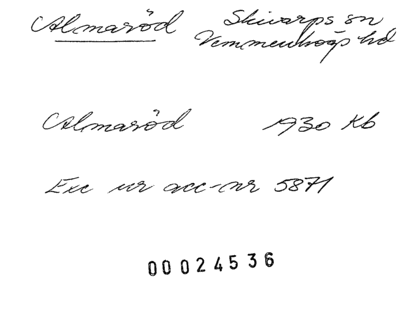 Almaröd Skivarps sn
Vemmenhögs hd
Almaröd 1930 Kb
Exc ur acc-nr 5871
00024536